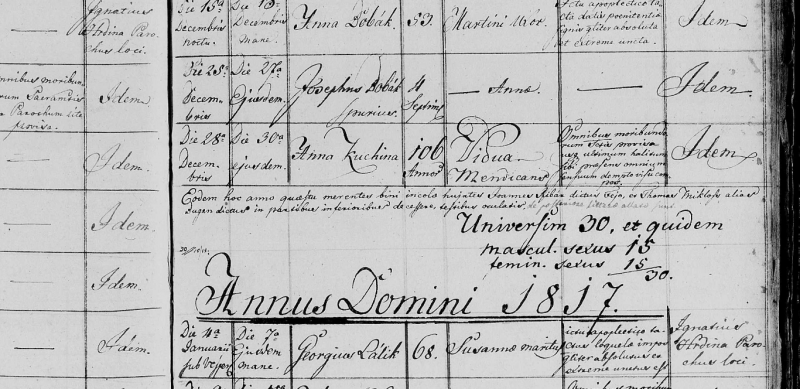 Ignatius
Hrdina Paro
chus loci.
Die 15ª
Decembris
noctu.
Die 18ª
Decembris
mane.
Anna Dobák.
53.
Martini Uxor.
ictu apoplectico ta
cta datis poenitentiae
signis gliter absoluta
et extreme uncta.
Idem
omnibus moribun
rum Sacramentis
Parochum lite
provisa.
Idem.
Die 25ª
Decem
bris
Die 27ª
Ejusdem.
Josephus Dobák
spurius.
4
Septim.
— Annæ —
Idem
Idem.
Die 28ª
Decem
bris
Die 30ª
ejusdem.
Anna Kuchina
106
Annor.
Vidua
Mendicans
Omnibus moribundo
rum Scris provisa
usq ultimum halitum
sibi præsens omnium
sensuum dempto visu com
pos.
Idem
Idem.
Eodem hoc anno quæstu merentes bini incolæ hujates Joannes dictus et Thomas Mikloss alias
dictus in partibus inferioribus decessere, testibus oculatis.
Universim 30, et quidem
mascul. sexus 15
femin. sexus 15
30.
Idem.
Annus Domini 1817.
Idem.
Die 4ª
Januarii
sub vesper
Die 7ª
Ejusdem
mane.
Georgius Lálik
68.
Susannæ maritus
ictu apoplectico ta
ctus loquela impos
gliter absolutus ex
extreme unctus est
Ignatius
Hrdina Paro
chus loci.